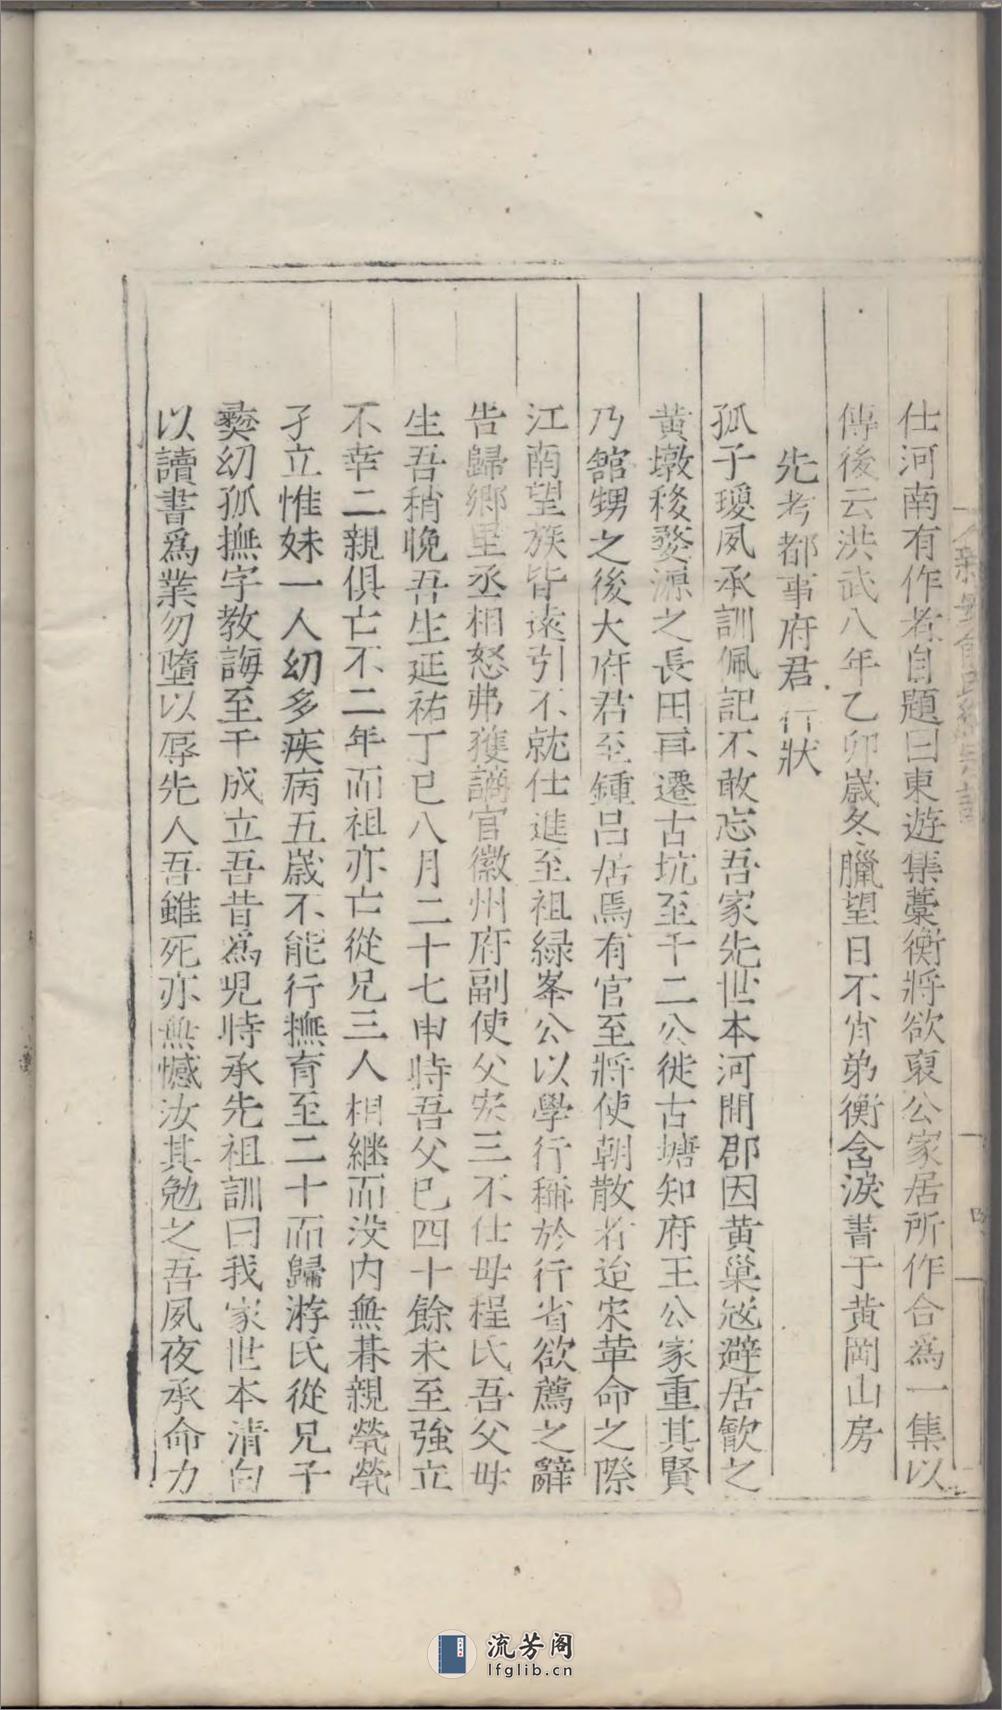 仕河南有作者自題曰東遊集藁衡將欲裒公家居所作合爲一集以
傳後云洪武八年乙卯歲冬臘望日不肖弟衡含淚書于黄岡山房
先考都事府君行狀
孤子璦夙承訓佩記不敢忘吾家先世本河間郡因黄巢寇避居歙之
黄墩移婺源之長田再遷古坑至千二公徙古塘知府王公家重其賢
乃館甥之後大府君至鍾呂居焉有官至將使朝散者迨宋革命之際
江南望族皆遠引不就仕進至祖緑峯公以學行稱於行省欲薦之辭
告歸鄉里丞相怒弗獲謫官徽州府副使父宍三不仕母程氏吾父母
生吾稍晚吾生延祐丁巳八月二十七申時吾父已四十餘未至強立
不幸二親俱亡不二年而祖亦亡從兄三人相継而没内無朞親煢煢
孑立惟妹一人幼多疾病五歲不能行撫育至二十而歸游氏從兄子
奱幼孤撫字教誨至于成立吾昔爲兒時承先祖訓曰我家世本清白
以讀書爲業勿墮以辱先人吾雖死亦無憾汝其勉之吾夙夜承命力
流芳阁
lfglib.cn